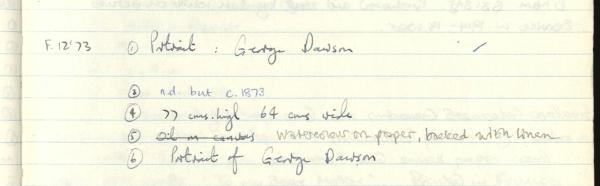 F.12'73 ① Portrait : George Dawson ✓
③ n.d. but c.1873
④ 77 cms. high 64 cms wide
⑤ oil on canvas Watercolour on paper, backed with linen
⑥ Portrait of George Dawson